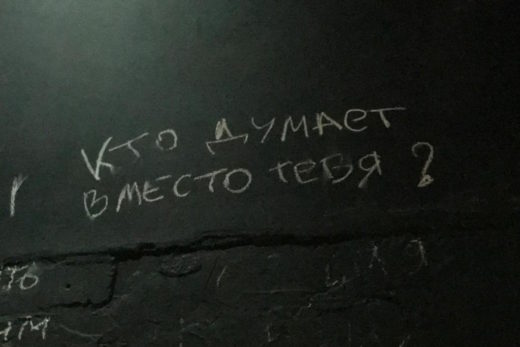 Кто думает
вместо тебя?